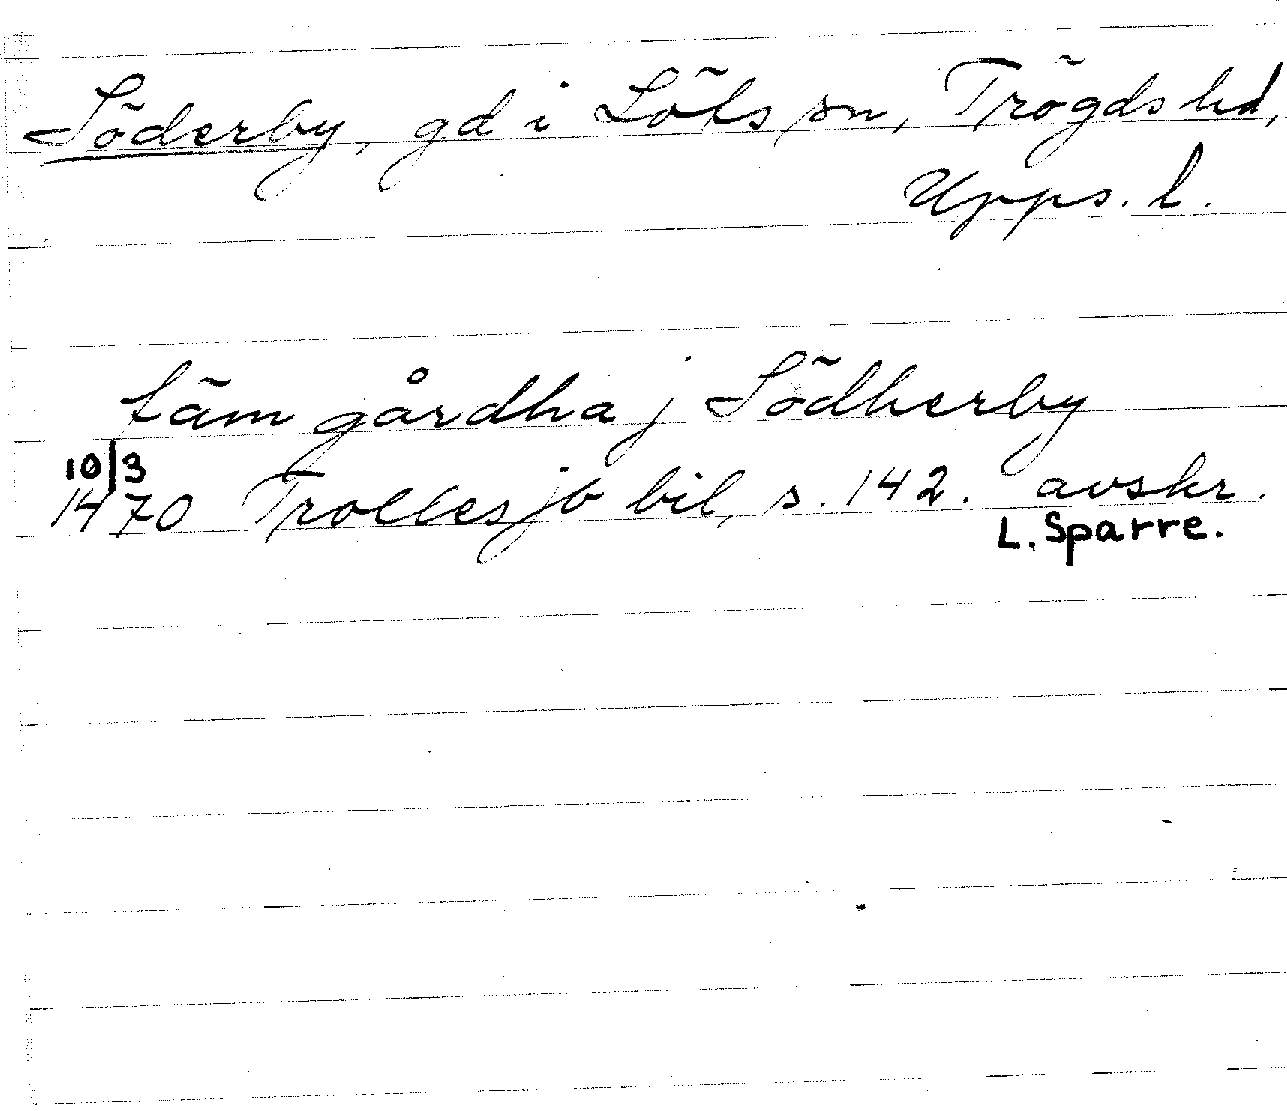 Söderby, gd i Löts sn, Trögds hd,
Upps. l.
fäm gårdha j Södherby
10/3
1470 Trollesjö bil, s. 142. avskr.
L. Sparre.